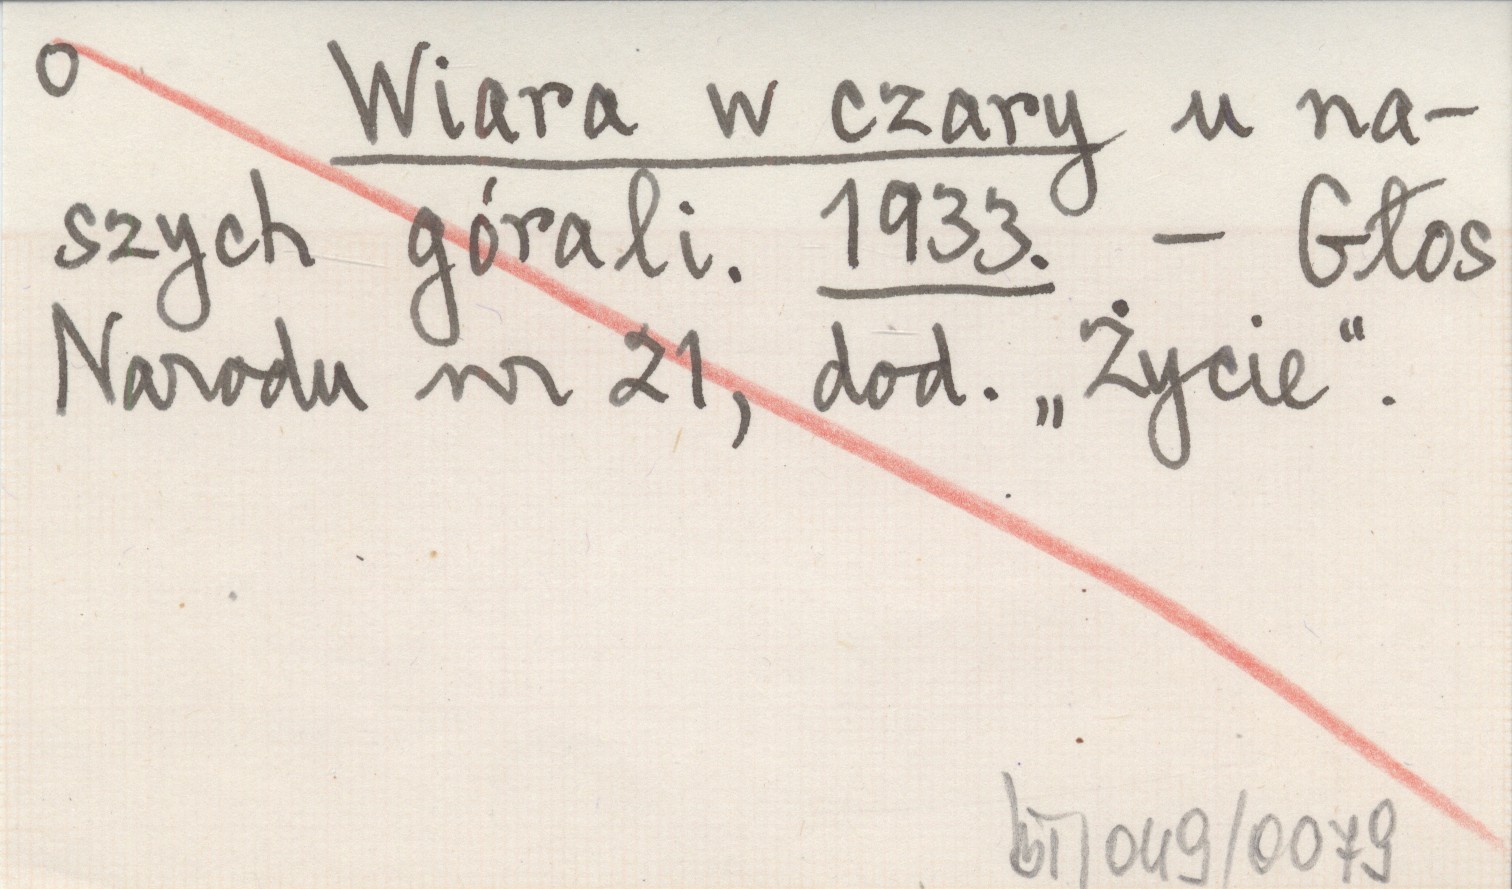 o Wiara w czary u na-
szych górali. 1933. – Głos
Narodu nr 21, dod. „Życie".
049/0079